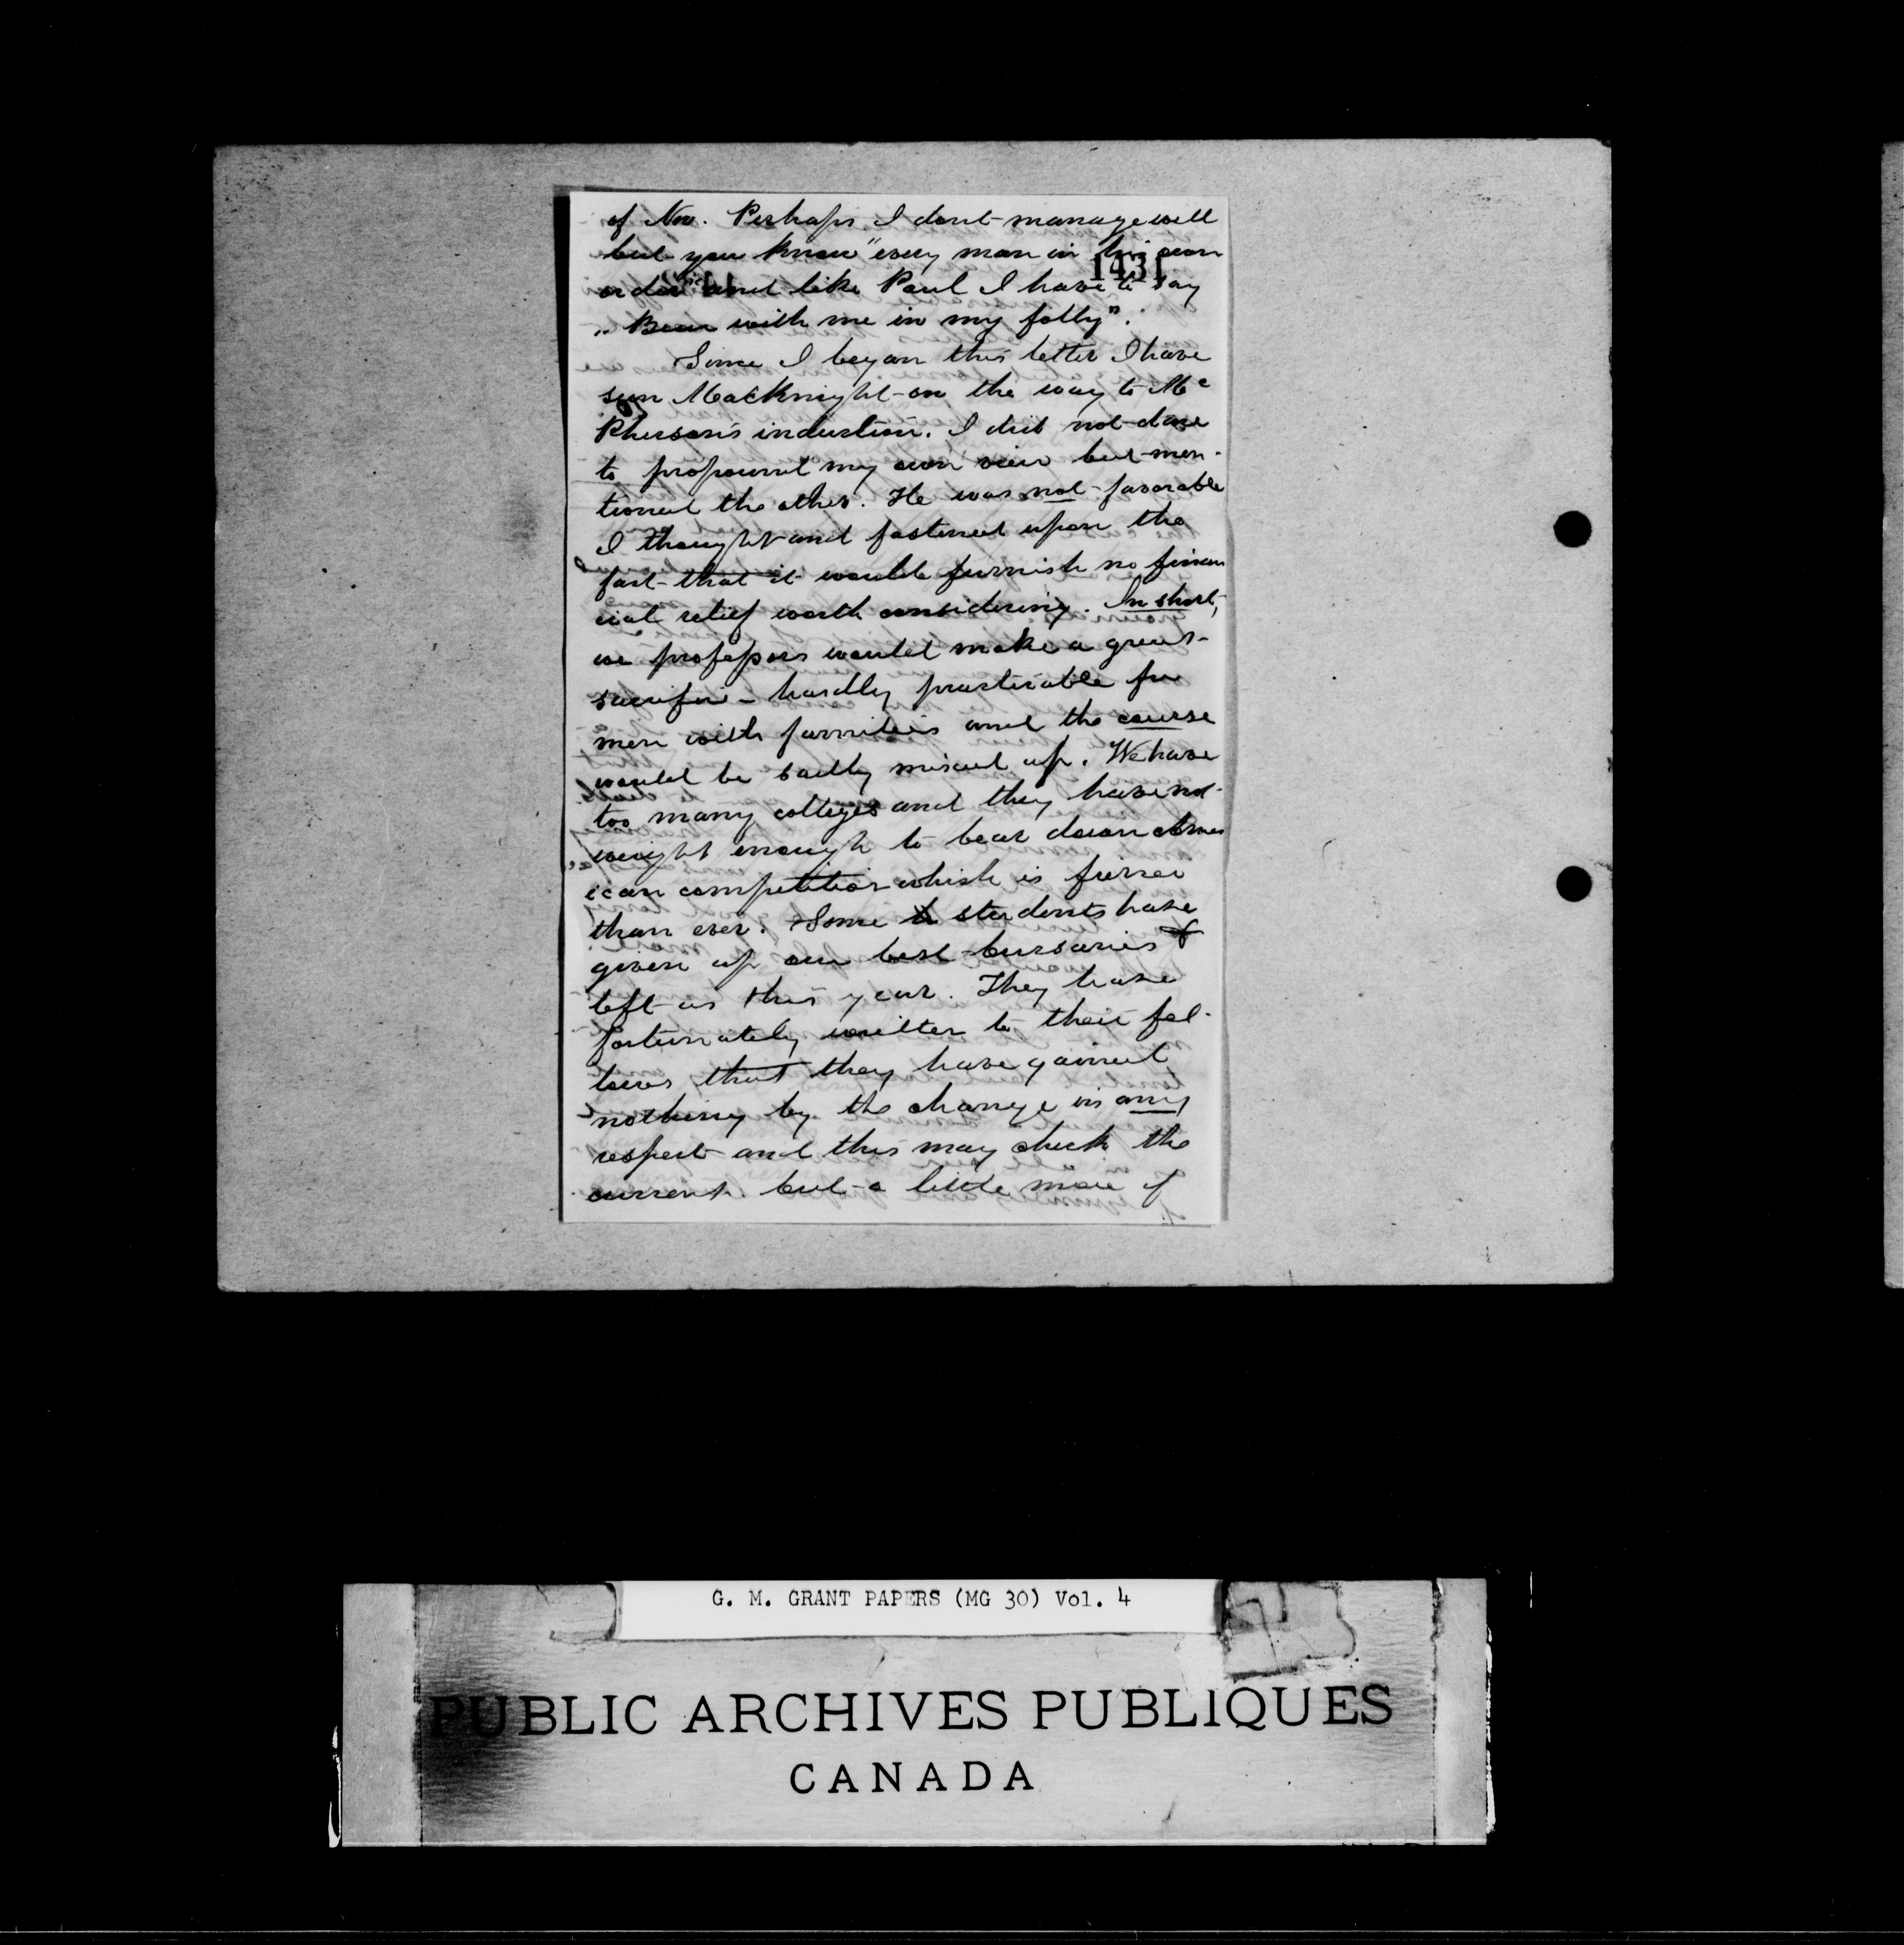 of Nov. Perhaps I dont manage well
but you know "every man in his own
1431
order" and like Paul I have to say
"Bear with me in my folly".
Since I began this letter I have
seen MacKnight on the way to Mc
Pherson's induction. I did not dare
to propound my own view but men-
tioned the other. He was not favorable
I thought and fastened upon the
fact that it would furnish no finan
cial relief worth considering. In short,
we professors would make a great
sacrifice - hardly practicable for
men with families and the course
would be sadly mixed up. We have
too many colleges and they have not
weight enough to bear down Amer
ican competition which is fiercer
than ever. Some students have
given up our best bursaries &
left us this year. They have
fortunately written to their fel-
lows that they have gained
nothing by the change in any
respect and this may check the
current but a little more of
G. M. GRANT PAPERS (MG 30) Vol. 4
PUBLIC ARCHIVES PUBLIQUES
CANADA